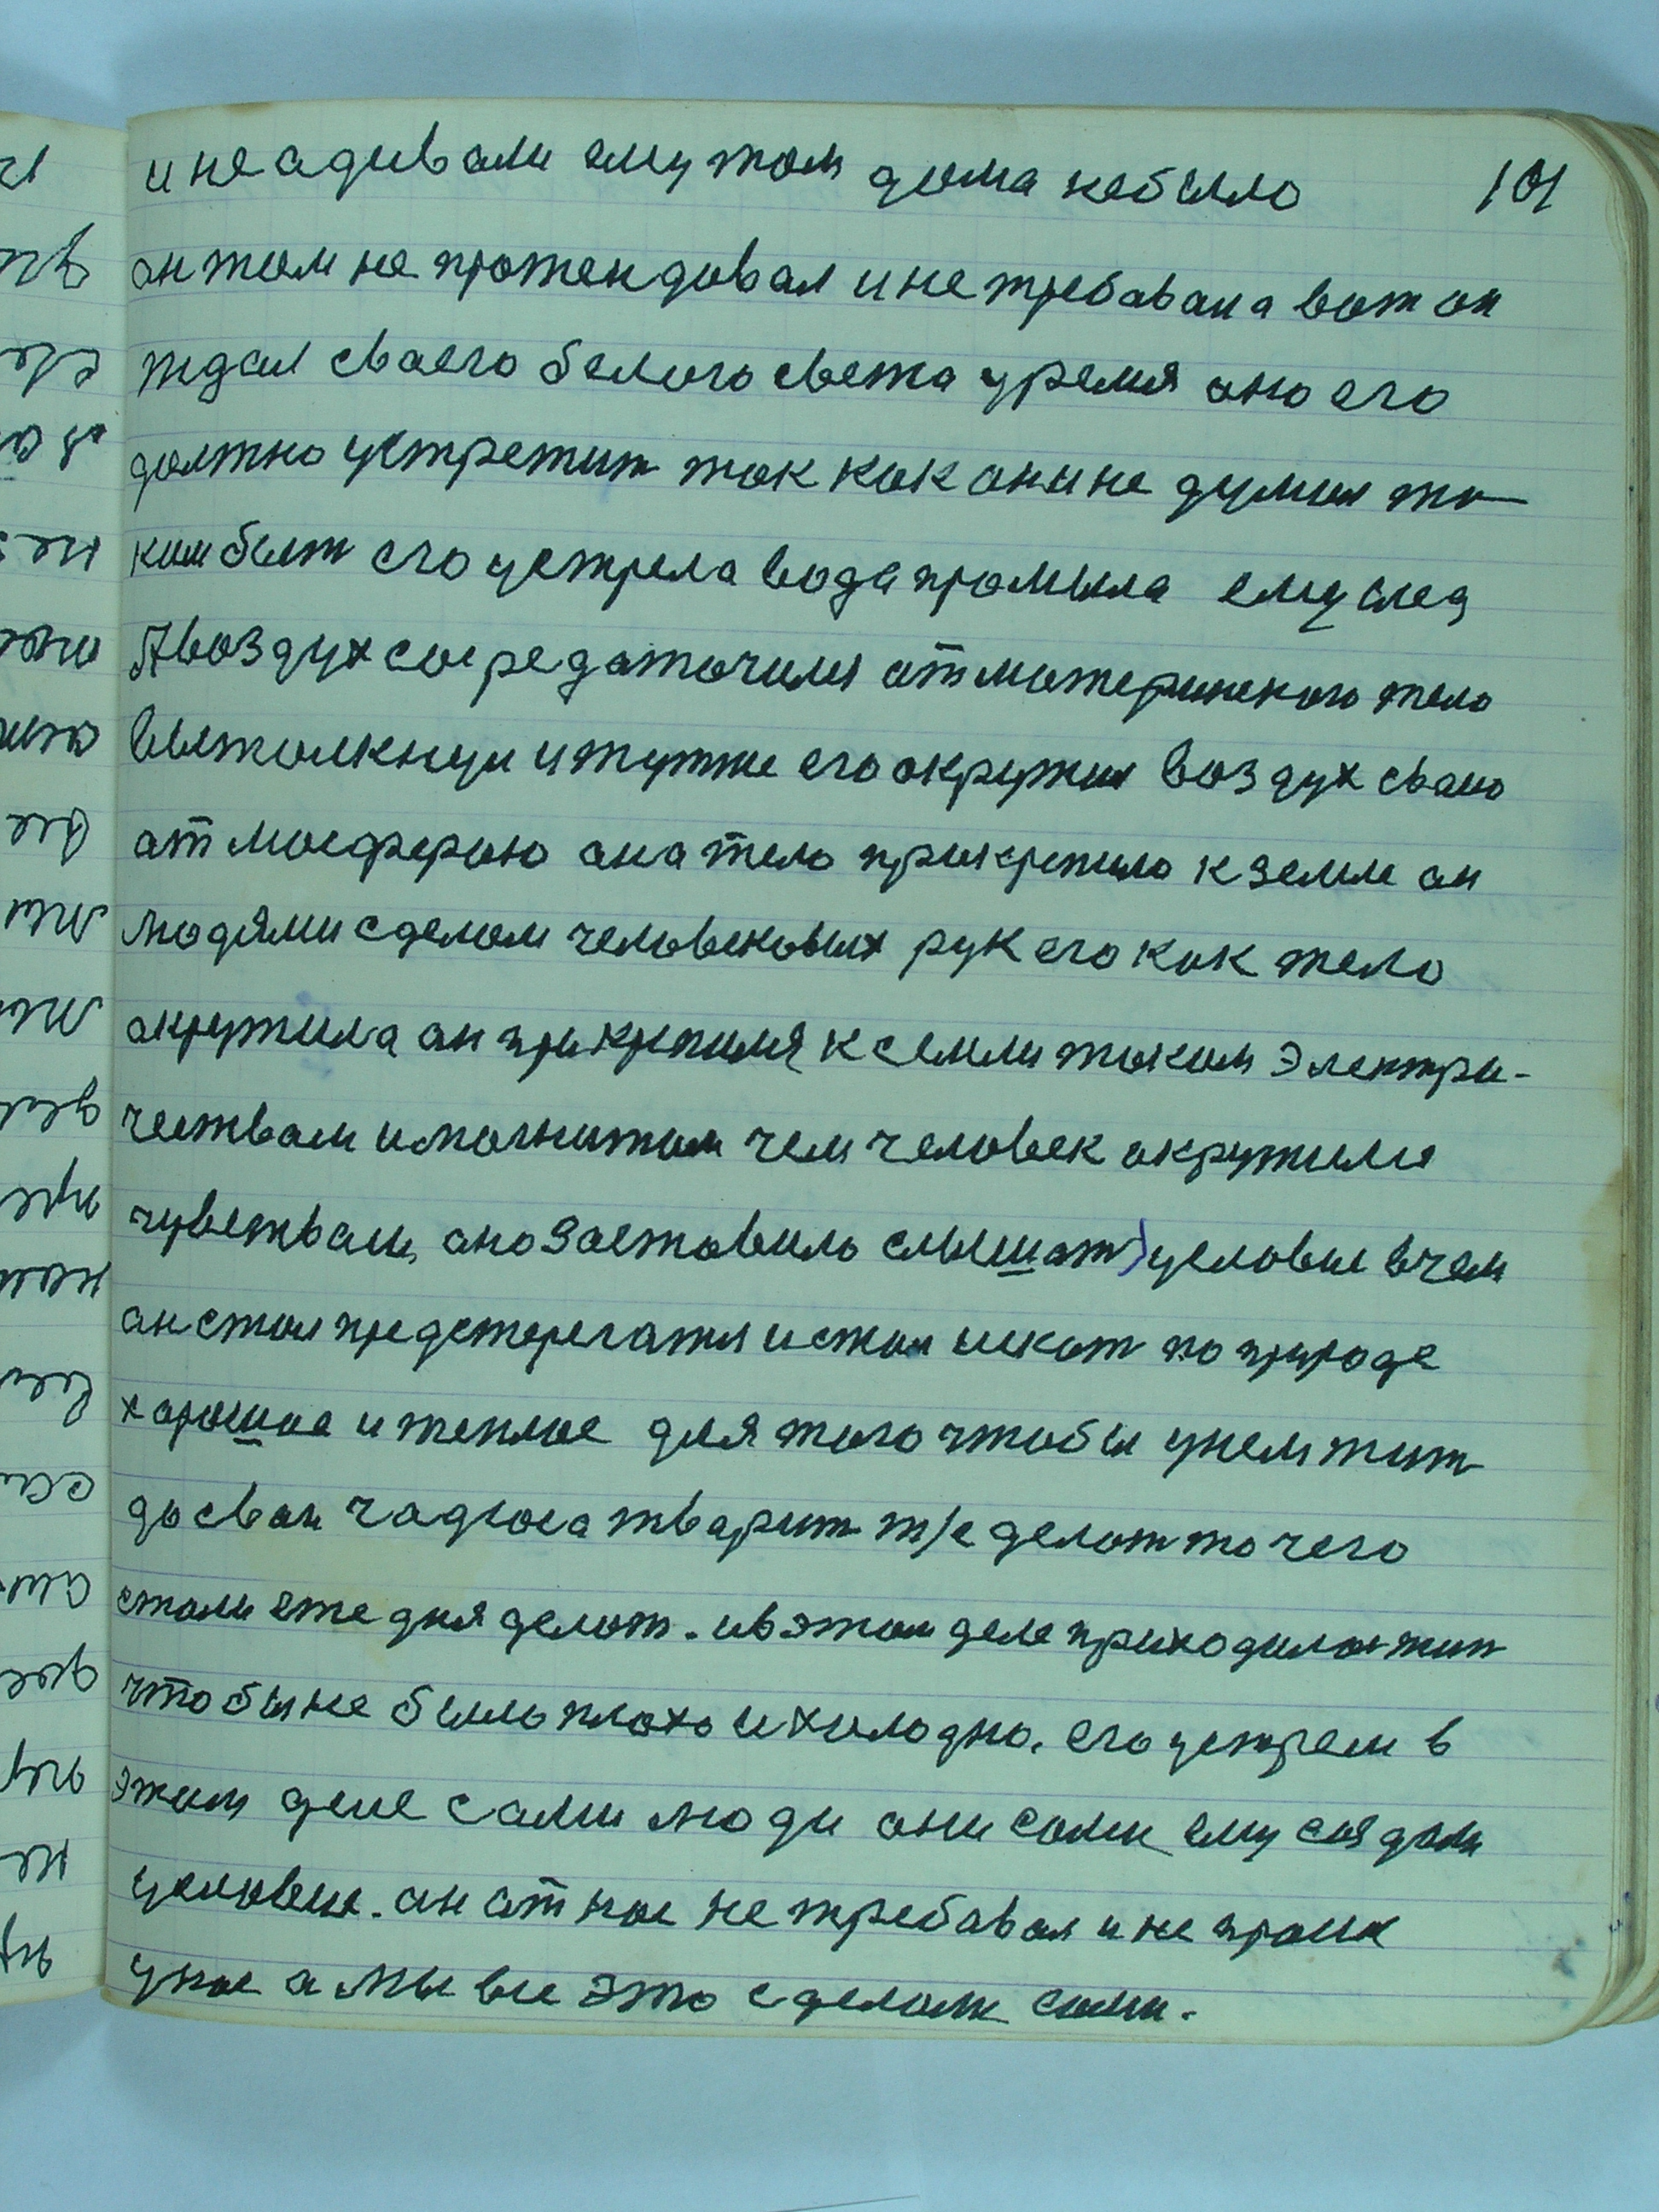 и не адивали ему там дома небыло 101
ан там не протендовал и не требавала вот он
ждал сваего белого света уремя ано его
должно устретит так как ани не думал та-
ким быт его устрела вода промыла ему след
А воздух сасредаточился от материнского тела
вытолкнул и тутже его акружил воздух сваю
атмосферою ана тело прикрепило к земле ан
людями сделал человековых рук его как тело
акружила ан прикрепился к семли таким электри-
чествам и магнитам чем человек акружился
чувствам, ано заставило слышат условие в чем
ан стал предстерегатся и стал искат по природе
харошие и теплое для таго чтобы унем жит
до сваи чадюса тварит т/е делат то чего
стали еже дня делат. и в этом деле приходилос жит
чтобы не было плохо и холодно. его устрел в
этом деле сами люди ани сами ему саздали
условие. ан от нас не требавал и не просил
унас а мы все это сделали сами.